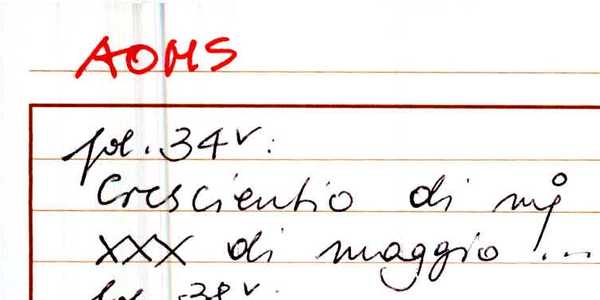 AOMS
fol. 34v:
Crescientio di mº
XXX di maggio !...
fol. 38v.